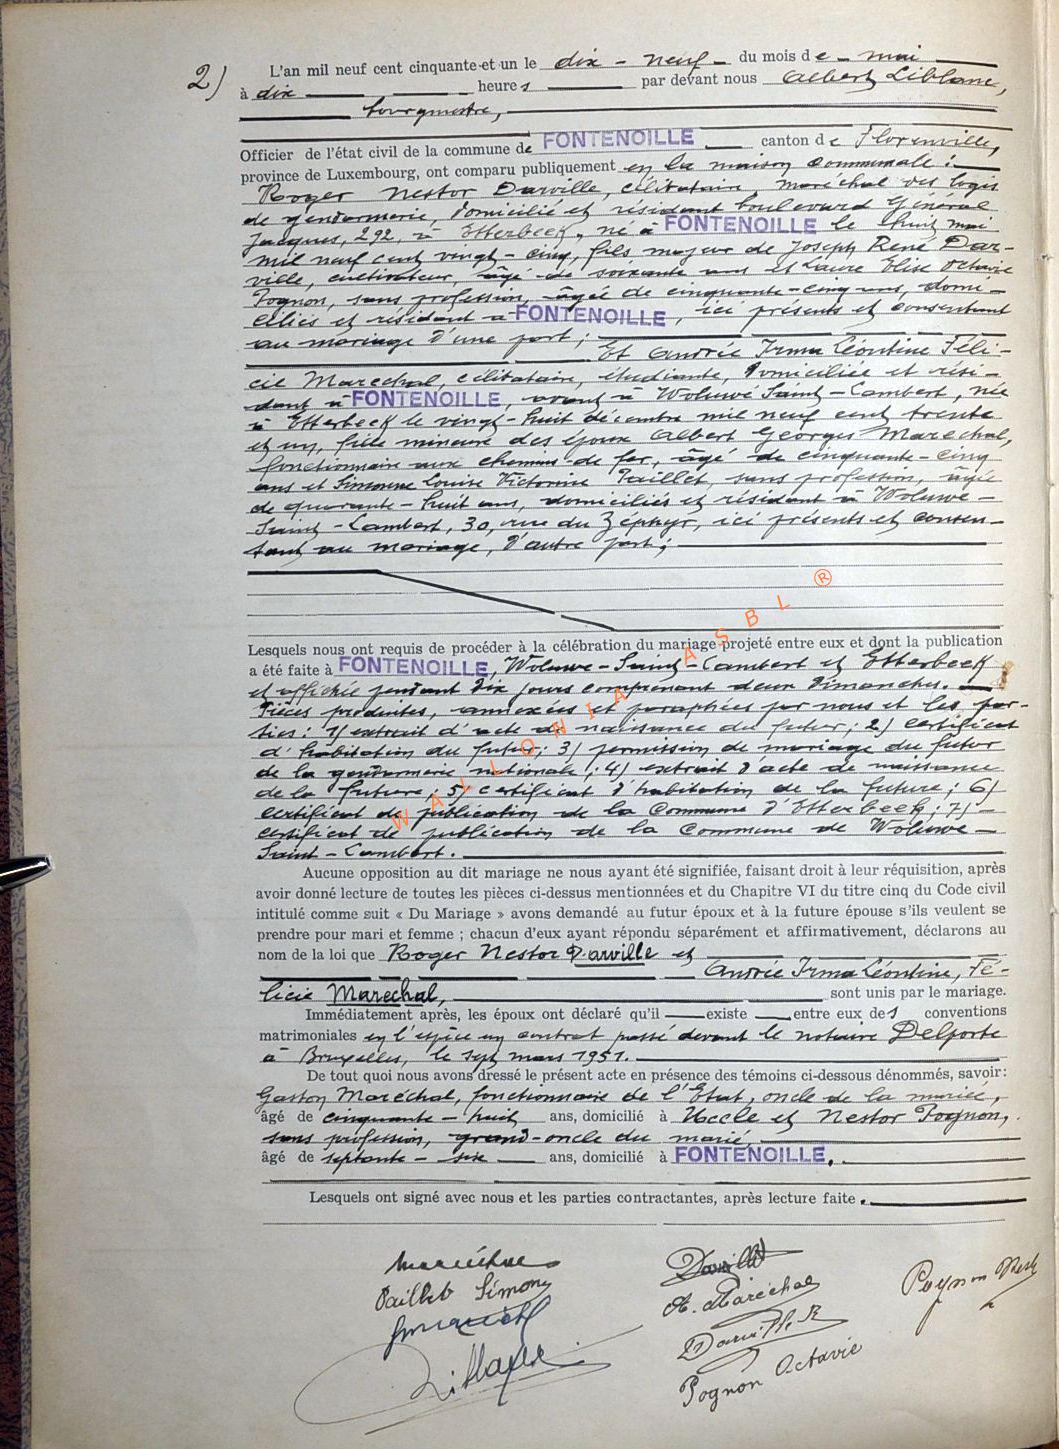 2) L'an mil neuf cent cinquante et un le dix - neuf du mois de mai
à dix heures par devant nous Albert Leblanc,
bourgmestre,
Officier de l'état civil de la commune de FONTENOILLE canton de Florenville,
province de Luxembourg, ont comparu publiquement en la maison communale :
Roger Nestor Darville, célibataire, maréchal des logis
de gendarmerie, domicilié et résidant boulevard Général
Jacques, 292, à Etterbeek, né à FONTENOILLE le huit mai
mil neuf cent vingt - cinq, fils majeur de Joseph René Dar-
ville, cultivateur, âgé de soixante ans et Laure Elise Octavie
Pognon, sans profession, âgée de cinquante-cinq ans, domi-
ciliés et résidant à FONTENOILLE, ici présents et consentant
au mariage d'une part ;
Et Andrée Irma Léontine Féli-
cie Marechal, célibataire, étudiante, domiciliée et rési-
dant à FONTENOILLE, avant à Woluwé Saint-Lambert, née
à Etterbeek le vingt-huit décembre mil neuf cent trente
et un, fille mineure des époux Albert Georges Marechal,
fonctionnaire aux chemins de fer, âgé de cinquante-cinq
ans et Simonne Louise Victorine Paillet, sans profession, âgée
de quarante-huit ans, domiciliés et résidant à Woluwe-
Saint-Lambert, 30, rue du Zéphyr, ici présents et consen-
tant au mariage, d'autre part ;
Lesquels nous ont requis de procéder à la célébration du mariage projeté entre eux et dont la publication
a été faite à FONTENOILLE, Woluwe-Saint-Lambert et Etterbeek
et affichée pendant dix jours comprenant deux dimanches.
Pièces produites, annexées et paraphées par nous et les par-
ties : 1) extrait d'acte de naissance du futur ; 2) certificat
d'habitation du futur ; 3) permission de mariage du futur
de la gendarmerie nationale ; 4) extrait d'acte de naissance
de la future ; 5) certificat d'habitation de la future ; 6)
certificat de publication de la Commune d'Etterbeek ; 7)
certificat de publication de la Commune de Woluwe-
Saint-Lambert.
WALLONIA ASBL ®
Aucune opposition au dit mariage ne nous ayant été signifiée, faisant droit à leur réquisition, après
avoir donné lecture de toutes les pièces ci-dessus mentionnées et du Chapitre VI du titre cinq du Code civil
intitulé comme suit « Du Mariage » avons demandé au futur époux et à la future épouse s'ils veulent se
prendre pour mari et femme ; chacun d'eux ayant répondu séparément et affirmativement, déclarons au
nom de la loi que Roger Nestor Darville et
Andrée Irma Léontine, Fé-
licie Marechal, sont unis par le mariage.
Immédiatement après, les époux ont déclaré qu'il existe entre eux des conventions
matrimoniales en l'espèce un contrat passé devant le notaire Delporte
à Bruxelles, le sept mars 1951.
De tout quoi nous avons dressé le présent acte en présence des témoins ci-dessous dénommés, savoir :
Gaston Maréchal, fonctionnaire de l'Etat, oncle de la mariée,
âgé de cinquante - huit ans, domicilié à Uccle et Nestor Pognon,
sans profession, grand-oncle du marié,
âgé de septante - six ans, domicilié à FONTENOILLE.
Lesquels ont signé avec nous et les parties contractantes, après lecture faite.
Paillet Simonne
A. Maréchal
Darville R
Pognon Octavie
Pognon Nest